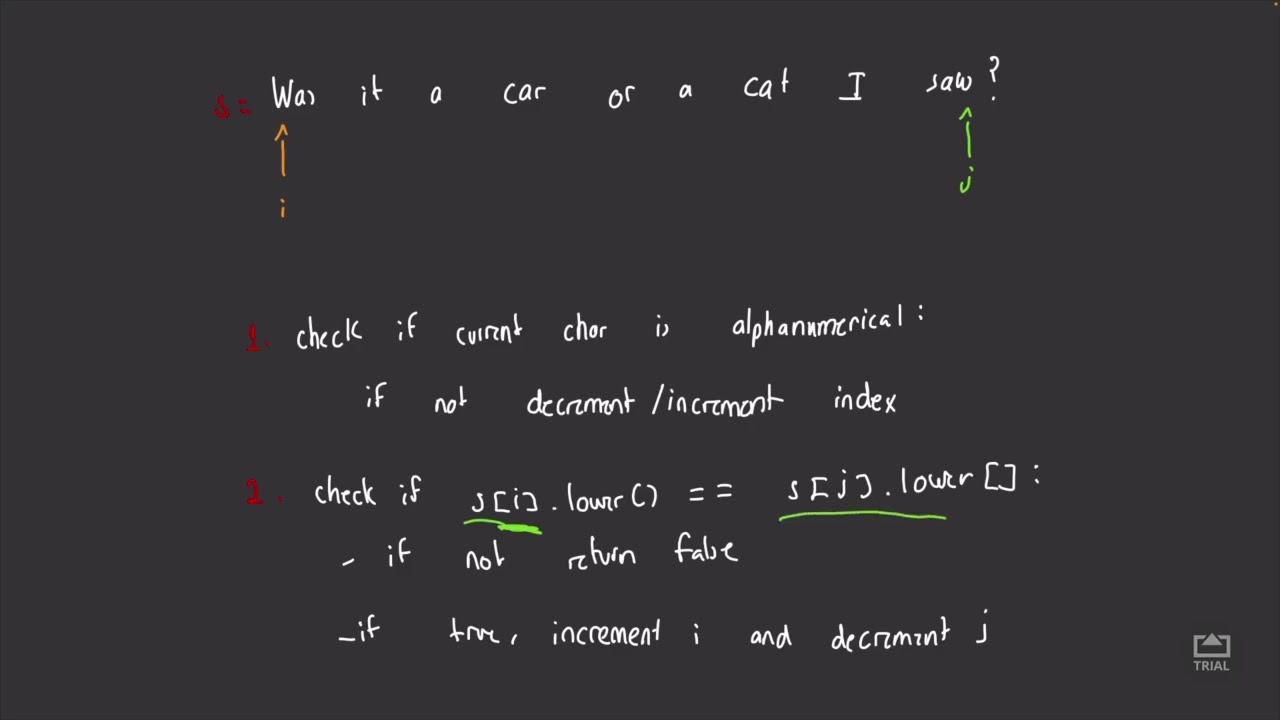 s = Was it a car or a cat I saw?
i
j
1. check if current char is alphanumerical:
if not decrement /increment index
2. check if s[i].lower() == s[j].lower[]:
- if not return false
- if true, increment i and decrement j
TRIAL